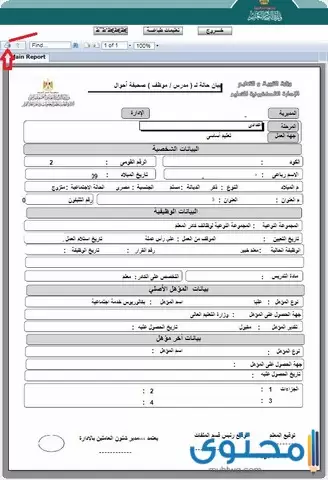 خروج
تعليمات طباعة
Find...
1 of 1
100%
Main Report
وزارة التربية و التعليم
بيان حالة لـ ( مدرس / موظف ) صحيفة أحوال
المديرية :
الإدارة :
المرحلة :
جهة العمل :
تعليم أساسي
البيانات الشخصية
الكود :
الرقم القومي : 2
الاسم رباعي :
تاريخ الميلاد :
م الميلاد
النوع : ذكر
الديانة : مسلم
الجنسية : مصري
الحالة الاجتماعية : متزوج
العنوان :
رقم التليفون : 0
البيانات الوظيفية
المجموعة النوعية :
تاريخ التعيين :
الموقف من العمل : على رأس عمله
تاريخ استلام العمل :
الوظيفة الحالية : معلم خبير
رقم القرار :
تاريخ الوظيفة :
مادة التدريس :
التخصص على الكادر : معلم
بيانات المؤهل الأصلي
نوع المؤهل : عليا
اسم المؤهل : بكالوريوس خدمة اجتماعية
جهة الحصول على المؤهل : وزارة التعليم العالي
تقدير المؤهل : مقبول
تاريخ الحصول عليه :
بيانات آخر مؤهل
نوع المؤهل :
اسم المؤهل :
جهة الحصول على المؤهل :
تاريخ الحصول عليه :
الجزاءات : 1 : 2 :
3 : 4 :
توقيع المعلم
توقيع رئيس قسم الملفات
يعتمد ---مدير شئون العاملين بالادارة
محتوى
muhtwa.com